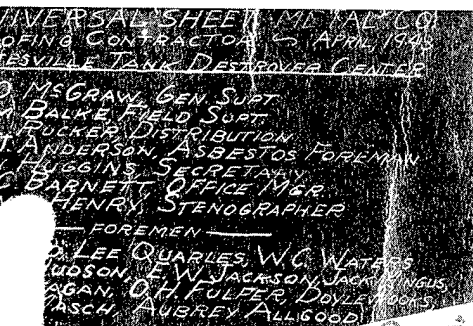 NIVERSAL SHEET METAL CO
OFING CONTRACTOR — APRIL 1943
TESVILLE TANK DESTROYER CENTER
MCGRAW, GEN. SUPT.
BALKE, FIELD SUPT.
RUCKER, DISTRIBUTION
T. ANDERSON, ASBESTOS FOREMAN
HUGGINS, SECRETARY
C. BARNETT, OFFICE MGR.
HENRY, STENOGRAPHER
— FOREMEN —
LEE QUARLES, W.C. WATERS
UDSON, E.W. JACKSON, JACK MINGUS,
AGAN, O.H. FULFER, DOYLE HOOKS,
ASCH, AUBREY ALLIGOOD